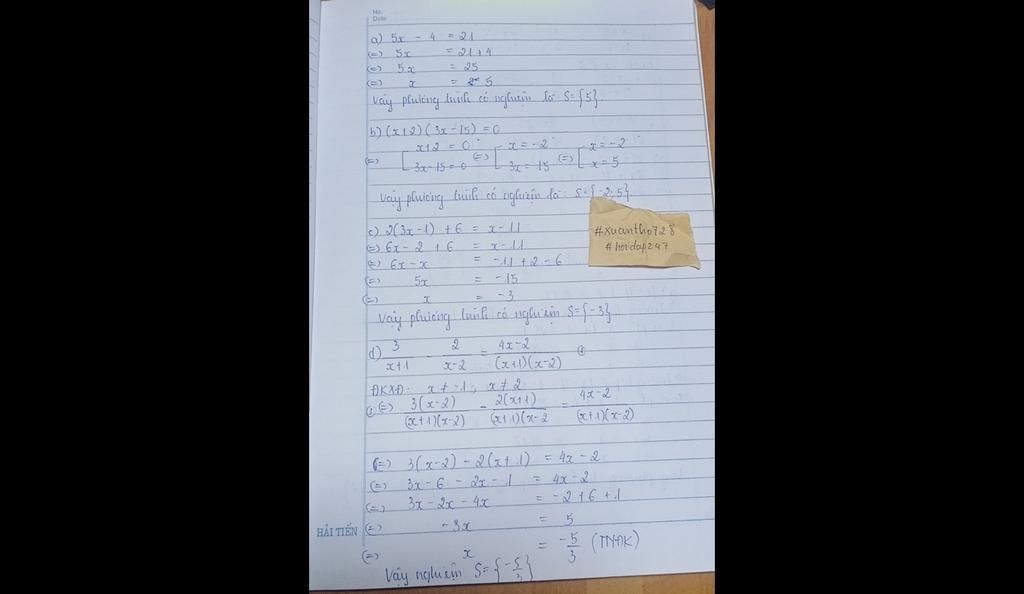 No.
Date
a) 5x - 4 = 21
(=) 5x = 21+4
(=) 5x = 25
(=) x = 5
Vậy phương trình có nghiệm là S={5}.
b) (x+2)(3x-15) = 0
(=) [ x+2 = 0 (=) [ x = -2 (=) [ x = -2
3x-15 = 0 3x = 15 x = 5
Vậy phương trình có nghiệm là: S={-2;5}
c) 2(3x-1) + 6 = x-11
(=) 6x - 2 + 6 = x-11
(=) 6x - x = -11 + 2 - 6
(=) 5x = -15
(=) x = -3
Vậy phương trình có nghiệm S={-3}
#xuantho728
#hoidap247
d) 3/(x+1) - 2/(x-2) = (4x-2)/((x+1)(x-2)) ①
ĐKXĐ: x ≠ -1; x ≠ 2
① (=) 3(x-2)/((x+1)(x-2)) - 2(x+1)/((x+1)(x-2 = (4x-2)/((x+1)(x-2))
(=) 3(x-2) - 2(x+1) = 4x-2
(=) 3x - 6 - 2x - 1 = 4x-2
(=) 3x - 2x - 4x = -2 + 6 + 1
(=) -3x = 5
(=) x = -5/3 (TMĐK)
Vậy nghiệm S={-5/3}
HẢI TIẾN